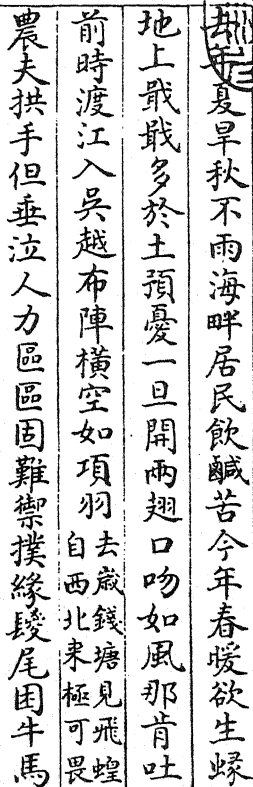 去年夏旱秋不雨海畔居民飲鹹苦今年春暖欲生蝝
地上戢戢多於土預憂一旦開兩翅口吻如風那肯吐
前時渡江入吳越布陣橫空如項羽去歲錢塘見飛蝗自西北來極可畏
農夫拱手但垂泣人力區區固難禦撲緣鬉尾困牛馬